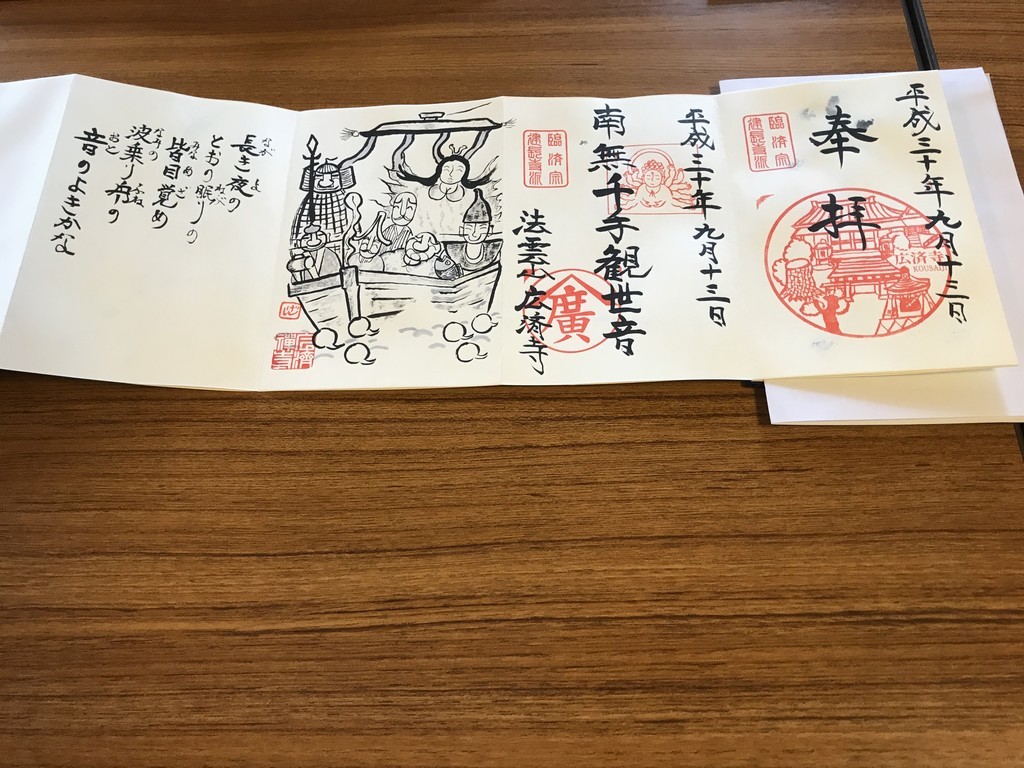 平成三十年九月十三日
奉拝
臨済宗
建長寺派
広済寺
KOUSAIJI
平成三十年九月十三日
南無千手観世音
臨済宗
建長寺派
法雲山広済寺
廣
なが よ
長き夜の
ねぶ
とおの眠りの
みな め ざ
皆目覚め
なみの ふね
波乗り舟の
おと
音のよきかな